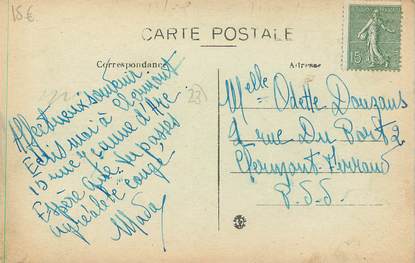 15€
CARTE POSTALE
Correspondance
Adresse
15
23
Affectueux souvenir
Ecris moi à Clermont
15 rue Jeanne d'Arc
Espère que tu passes
agréable congé
Mada
Melle Odette Douzans
1 rue Du Port 2
Clermont-Ferrand
P.d.D.